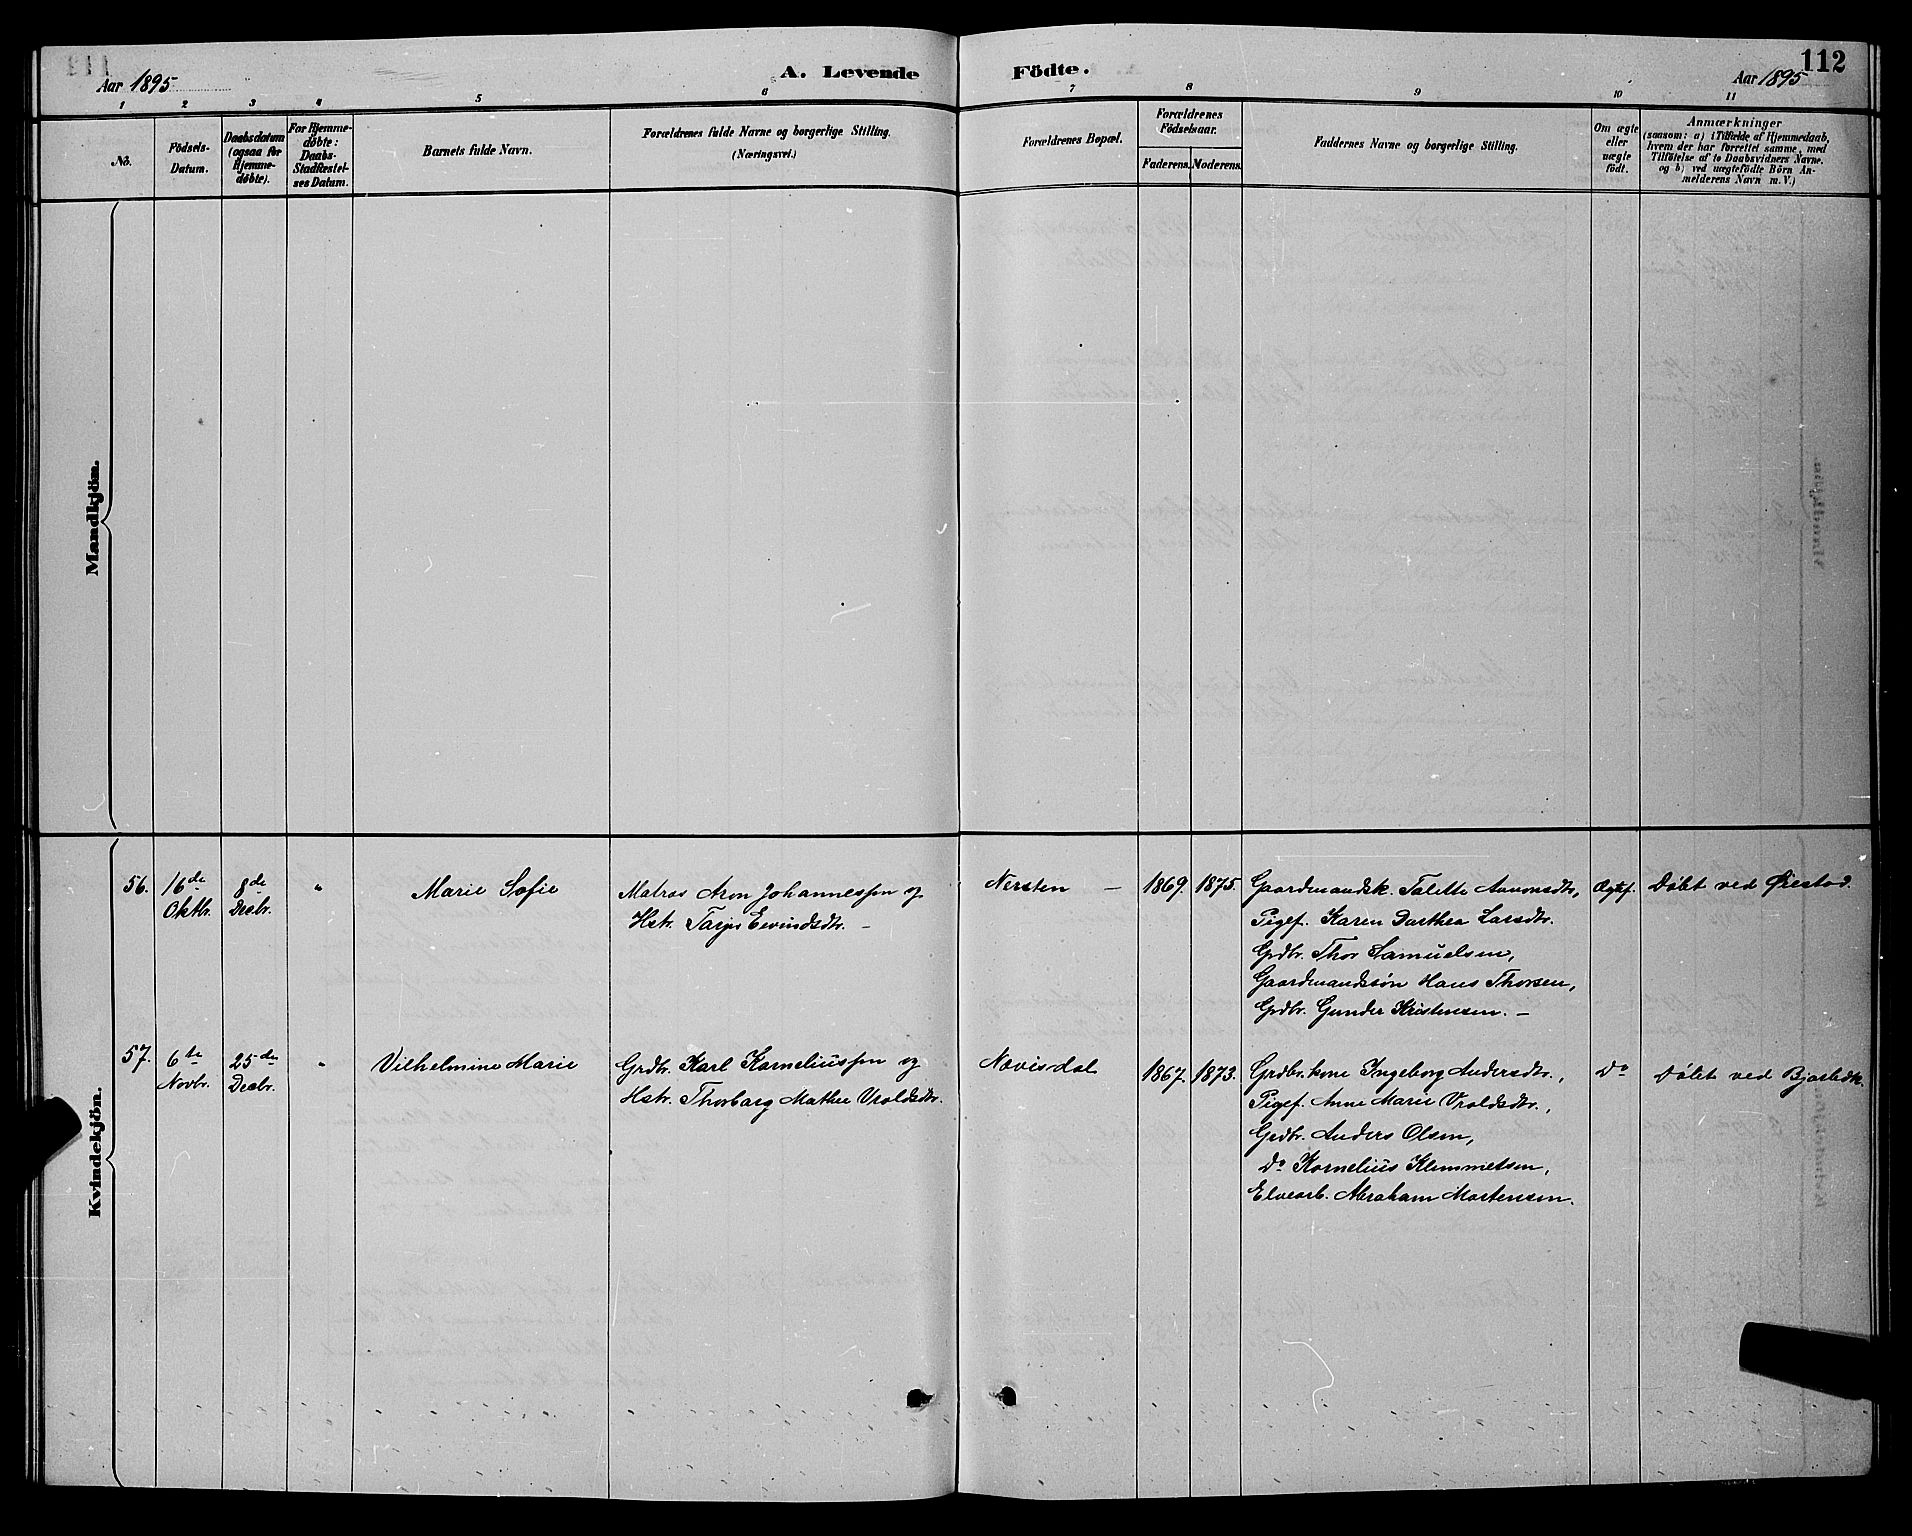 112
Aar 1895
A. Levende Födte.
Aar 1895
1 2 3 4 5 6 7 8 9 10 11
No.
Födsels-
Datum.
Daabsdatum
(ogsaa for
Hjemme-
døbte).
For Hjemme-
døbte:
Daabs-
Stadfæstel-
ses Datum.
Barnets fulde Navn.
Forældrenes fulde Navne og borgerlige Stilling.
(Næringsvei.)
Forældrenes Bopæl.
Forældrenes
Födselsaar.
Faderens. Moderens.
Faddernes Navne og borgerlige Stilling.
Om ægte
eller
uægte
födt.
Anmærkninger
(saasom: a) i Tilfælde af Hjemmedaab,
hvem der har forrettet samme, med
Tilföielse af to Daabsvidners Navne.
og b) ved uægtefödte Börn An-
melderens Navn m. V.)
Mandkjön.
Kvindekjön.
56.
16de
Oktbr.
8de
Decbr.
"
Marie Sofie
Matros Aron Johannessen og
Hstr. Tarjer Eivindsdtr. —
Nersten —
1869.
1875.
Gaardmandsk. Talette Aanonsdtr,
Pigef. Karen Dorthea Larsdtr.
Grdbr. Thor Samuelsen,
Gaardmandssön Hans Thorsen,
Grdbr. Gunder Kristensen. —
Ægtef.
Döbt ved Ørestad.
57.
6te
Novbr.
25de
Decbr.
"
Vilhelmine Marie
Grdbr. Karl Korneliussen og
Hstr. Thorbarg Mathea Vroldsdtr.
Nævisdal
1867.
1873.
Grdbr.kone Ingeborg Andersdtr.,
Pigef. Anne Marie Vroldsdtr.,
Grdbr. Anders Olsen,
Do Kornelius Klemmetsen,
Elvearb. Abraham Mortensen.
Do
Döbt ved Bjorbdk.